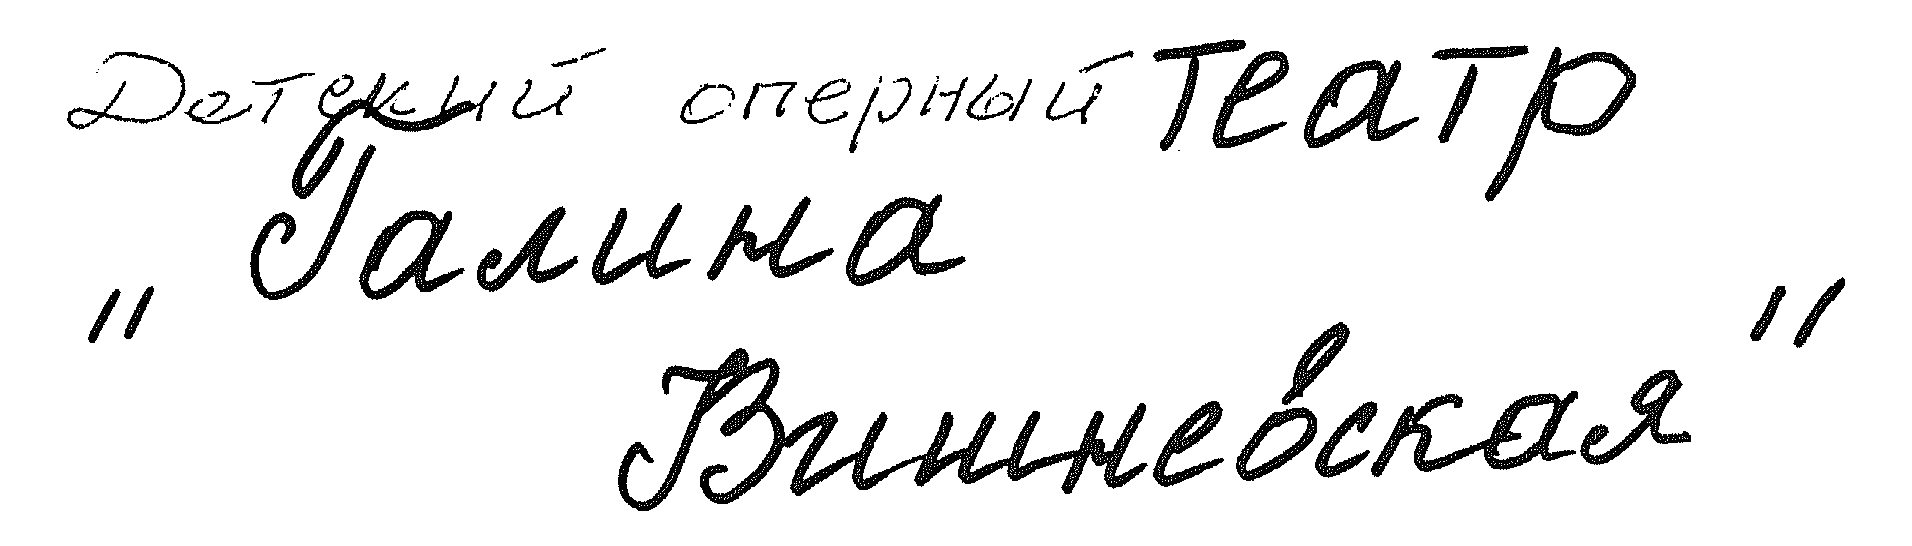 Детский оперный театр
Галина
"
"
Вишневская